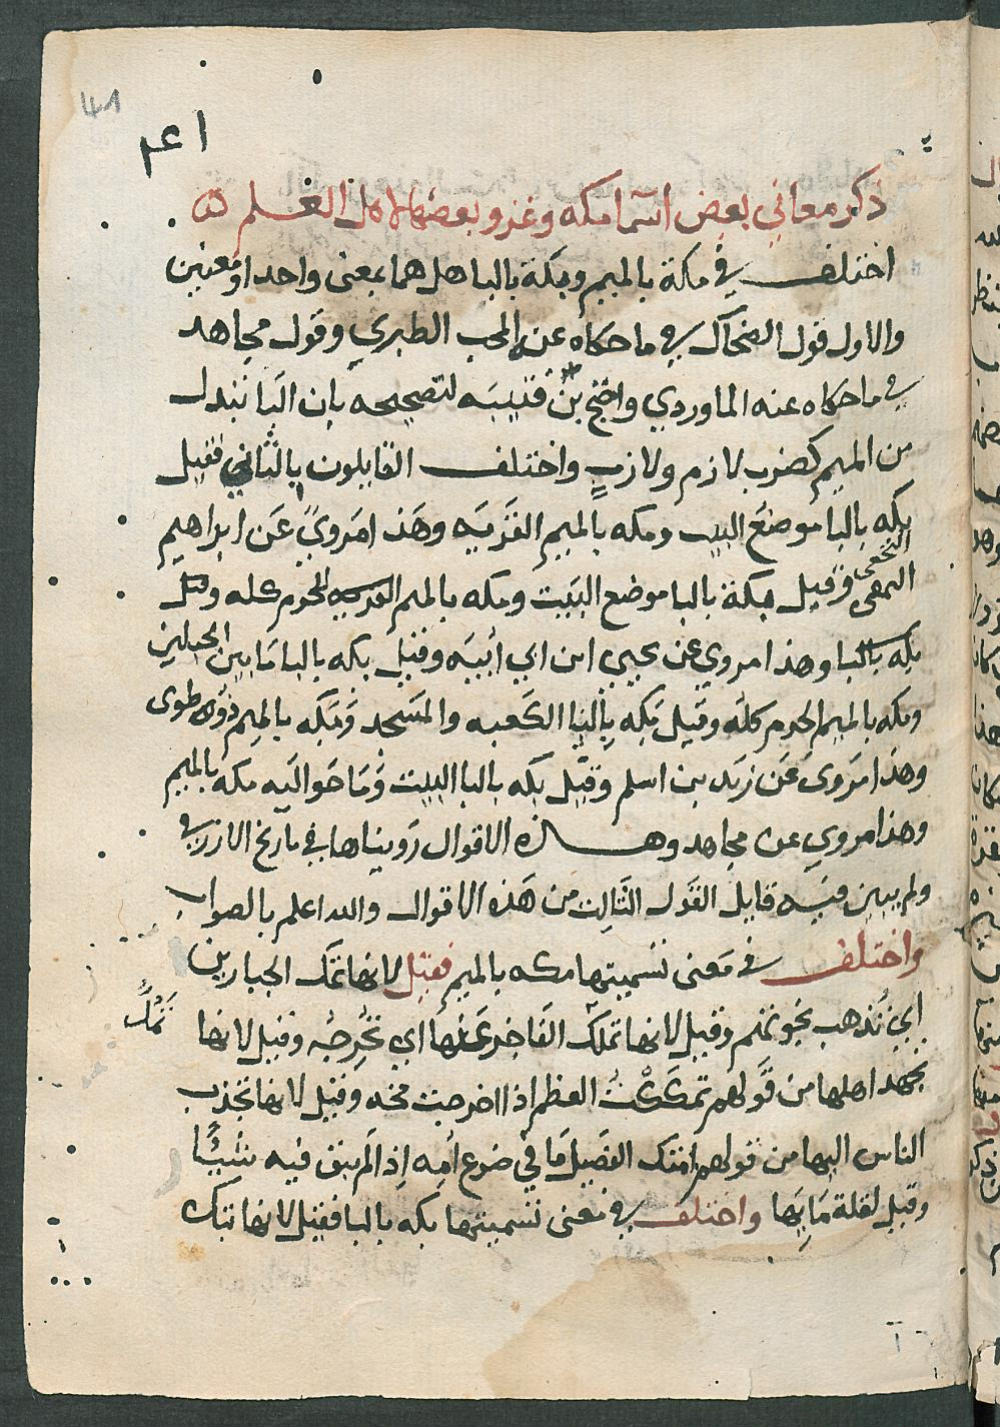 ذكر معاني بعض اسما مكه وعزو بعضها لاهل العلم
اختلف في مكة بالميم وبكة بالبا هل هما بمعنى واحد او معنين
والاول قول الضحاك في ما حكاه عنه المحب الطبري وقول مجاهد
في ما حكاه عنه الماوردي واحتج بن قتيبه لتصحيحه بان البا تبدل
من الميم كضرب لازم ولازب واختلف القايلون بالثاني فقيل
بكه بالبا موضع البيت ومكه بالميم القريه وهذا مروي عن ابراهيم
النخعى
وقيل بكة بالبا موضع البيت ومكه بالميم الحرم كله وقيل
بكه بالبا وهذا مروي عن يحيي ابن ابي انيسه وقيل بكه بالبا ما بين الجبلين
ومكه بالميم الحرم كله وقيل بكه بالبا الكعبه والمسجد ومكه بالميم ذو طوى
وهذا مروى عن زيد بن اسلم وقيل بكه بالبا البيت وما حواليه مكه بالميم
وهذا مروي عن مجاهد وهذه الاقوال رويناها في تاريخ الازرقي
ولم يبين فيه قايل القول الثالث من هذه الاقوال والله اعلم بالصواب
واختلف في معنى تسميتها مكه بالميم فقيل لانها تمك الجبارين
اي تذهب نخوتهم وقيل لانها تمك الفاجر عنها اي تخرجه وقيل لانها
تمك
تجهد اهلها من قولهم تمككت العظم اذا اخرجت مخه وقيل لانها تجذب
الناس اليها من قولهم امتك الفصيل ما في ضرع امه اذ الم يبق فيه شيا
وقيل لقلة مايها واختلف في معنى تسميتها بكه بالبا فقيل لانها تبك